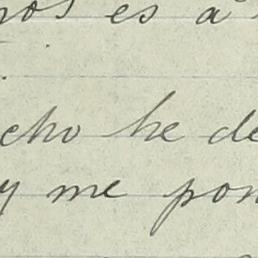 nos es a
cho he de
y me pon